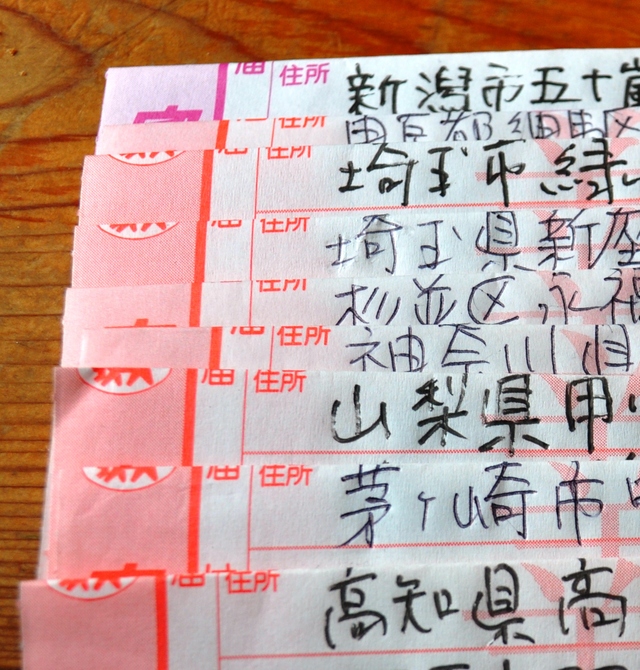 住所 新潟市五十嵐
住所
住所 埼玉市緑
住所 埼玉県新座
住所 杉並区永福
住所 神奈川県
住所 山梨県甲
住所 茅ヶ崎市
住所 高知県高